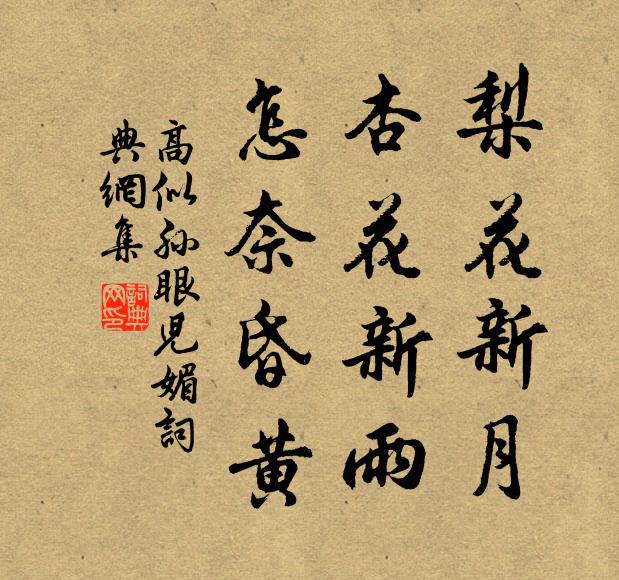 梨花新月
杏花新雨
怎奈昏黄
高似孙眼児媚詞
典網集
詞典网印